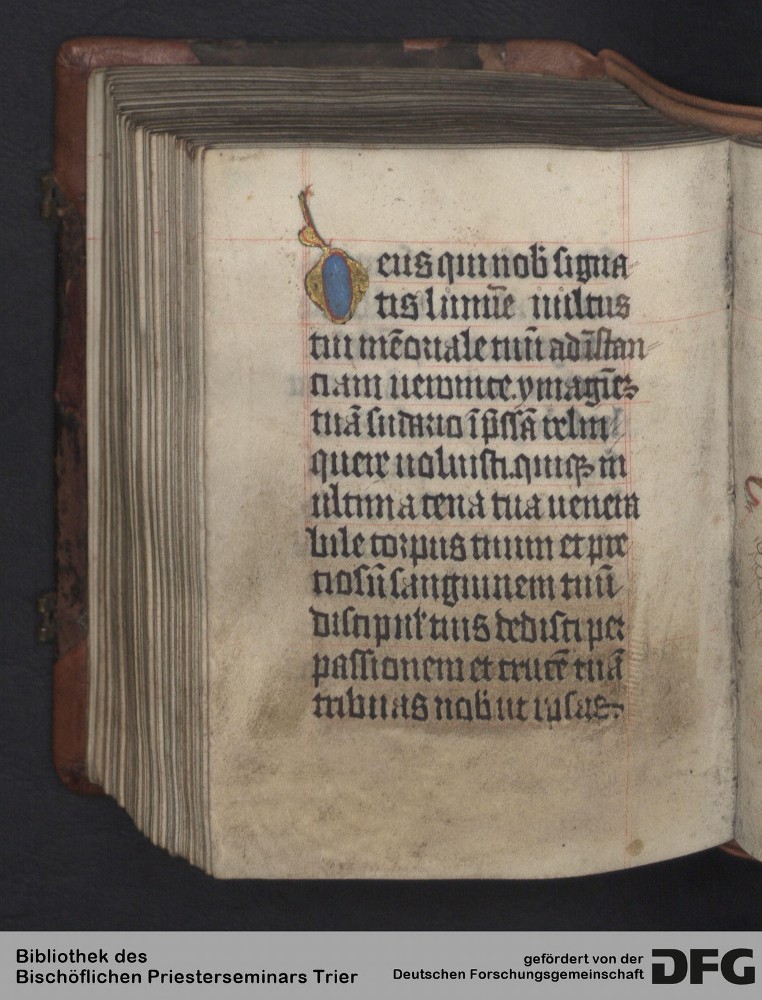 Deus qui nob̄ signa
tis lumīe uultus
tui mēoriale tuū ad īstan
tiam ueronice. ymagīez
tuā sudario īp̄ssā relin
quere uoluisti. quiqz in
ultima cena tua uenera
bile corpus tuum et pre
tiosū sanguinem tuū
discipul' tuis dedisti per
passionem et crucē tuā
tribuas nob̄ ut ipsas
Bibliothek des
Bischöflichen Priesterseminars Trier
gefördert von der
Deutschen Forschungsgemeinschaft DFG